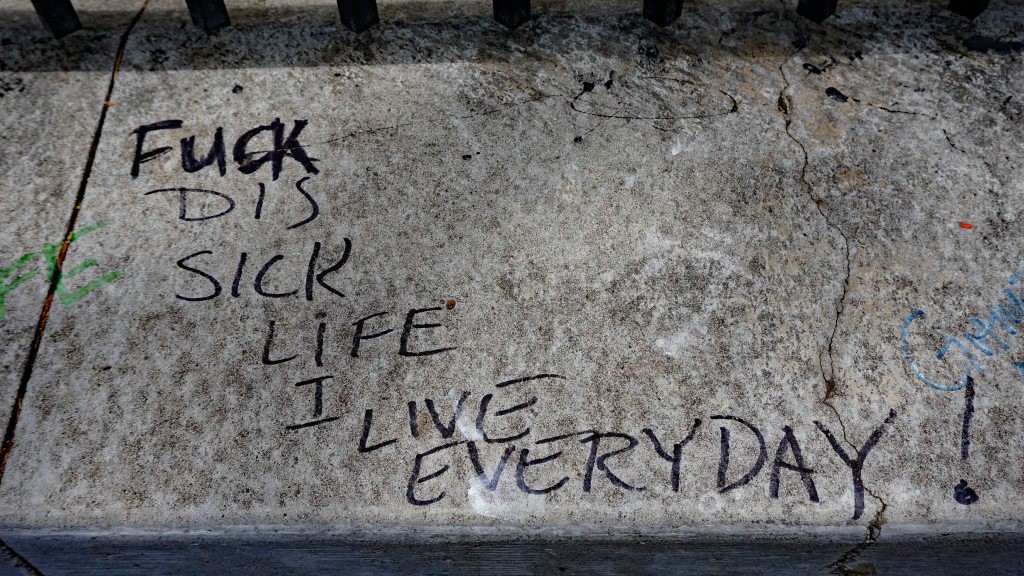 FUCK
DIS
SICK
LIFE
I LIVE
EVERYDAY!